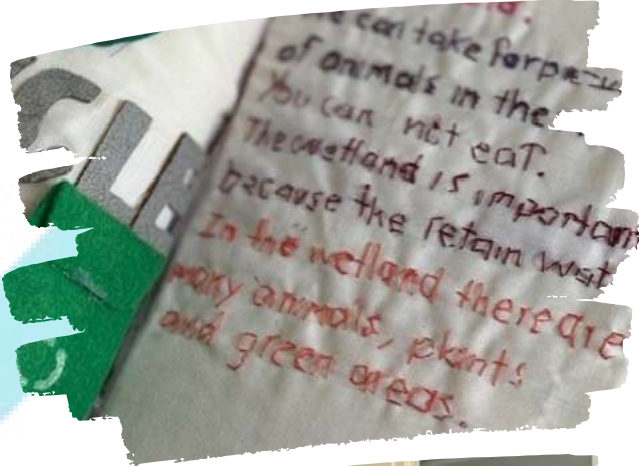 can take
of animals in the
You can not eat.
The wetland is important
because the retain wat
In the wetland there are
many animals, plants
and green areas.